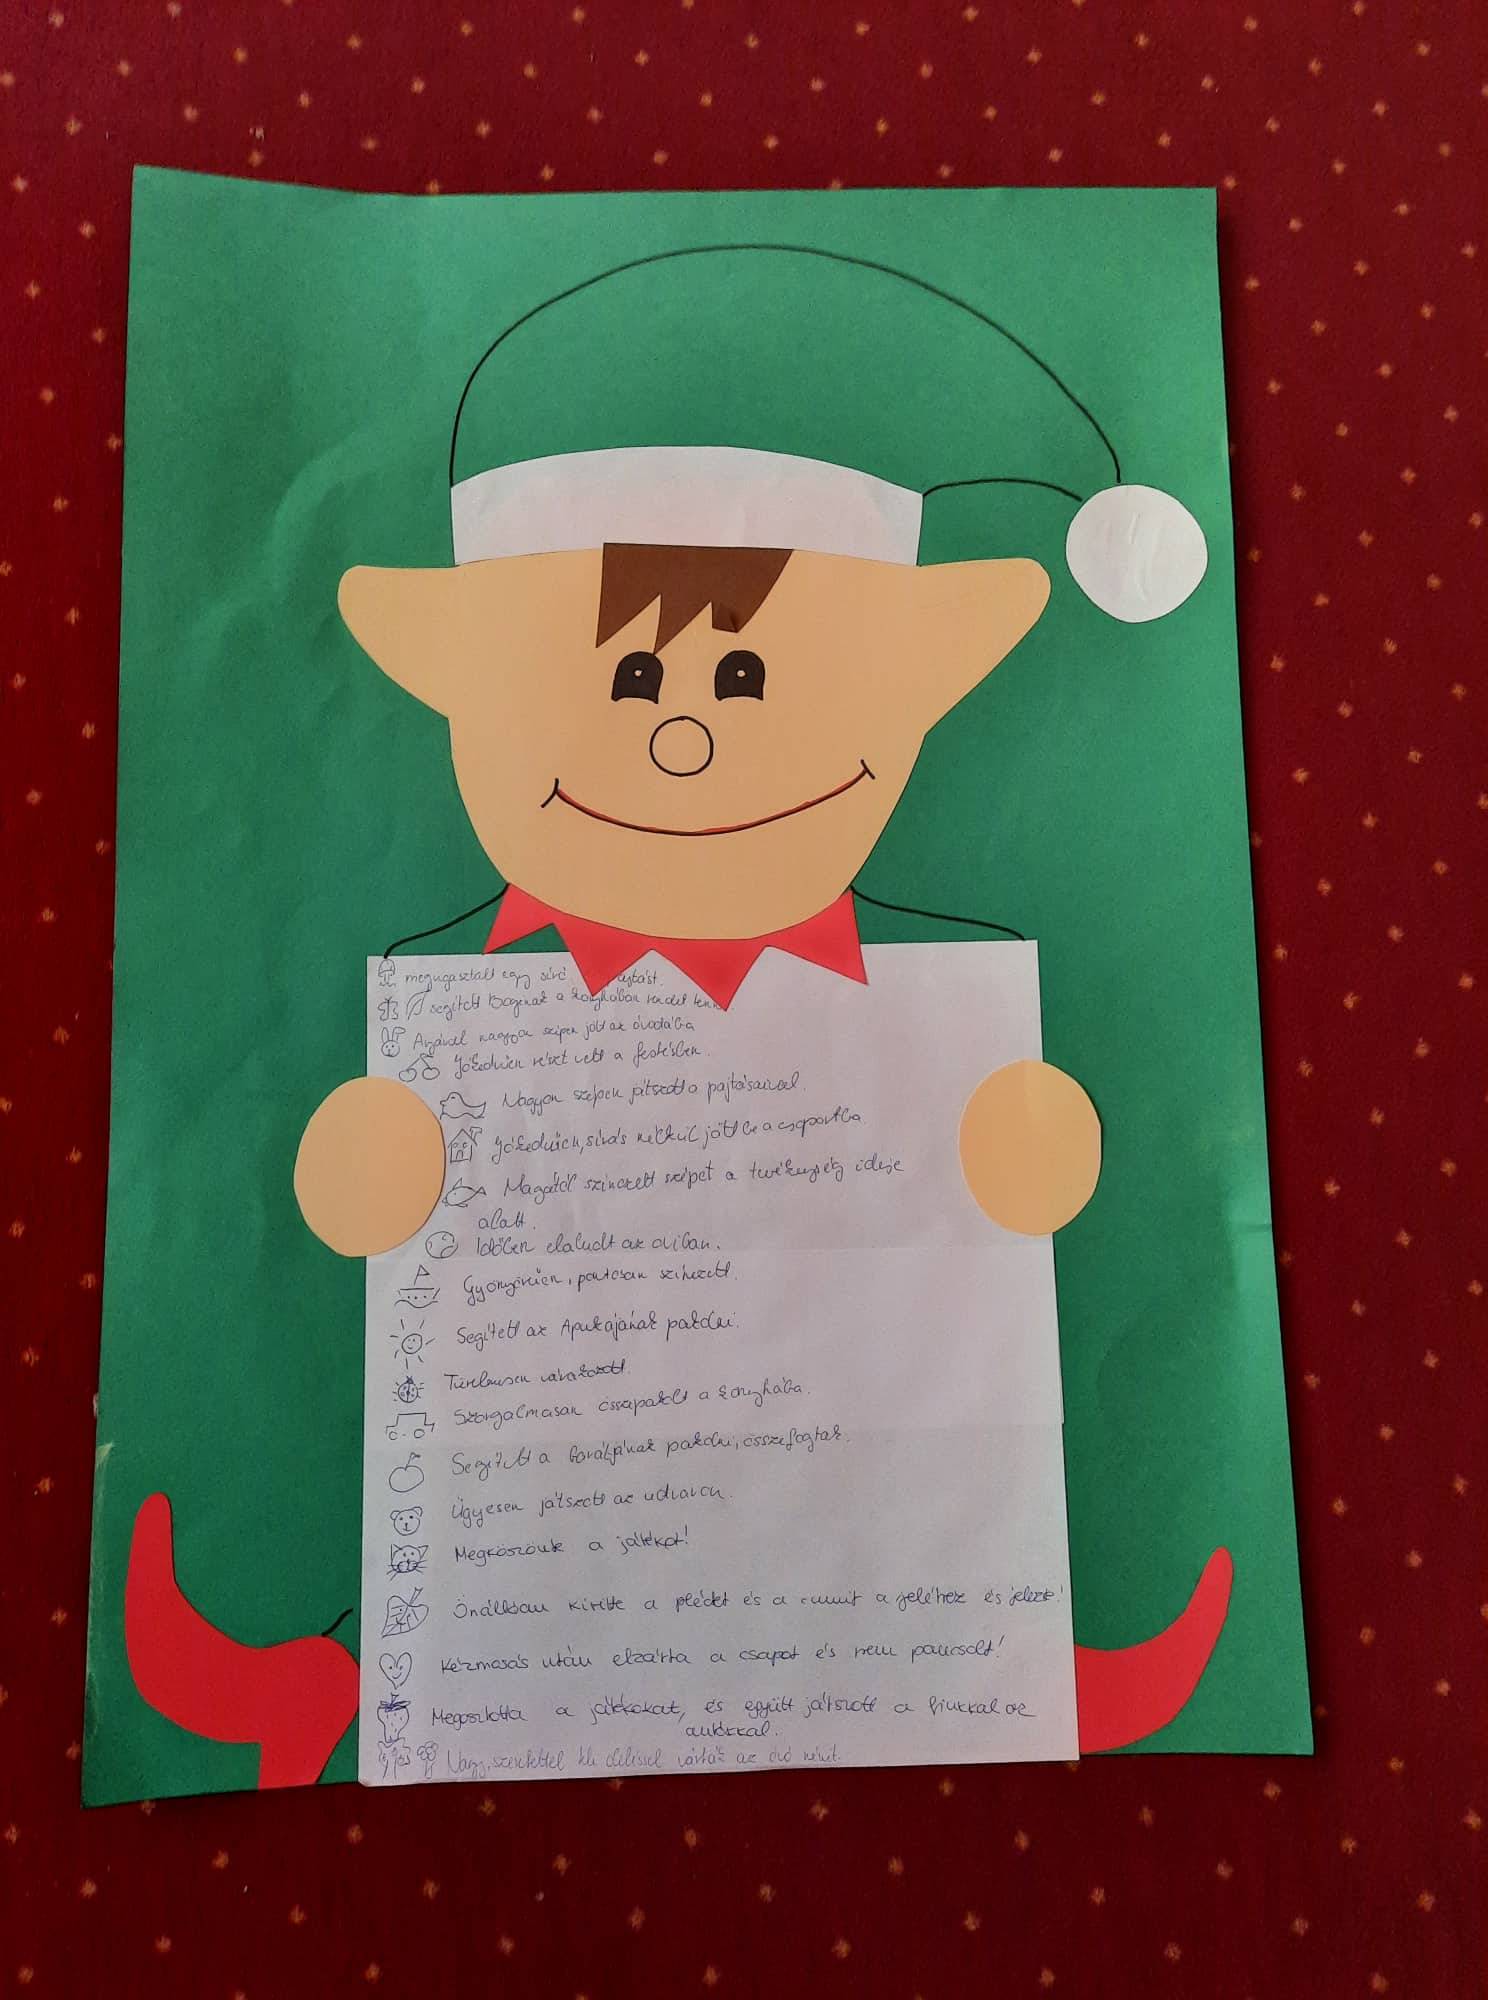 megvigasztalt egy síró pajtást.
segített Boginak a konyhában rendet tenni
Anyával nagyon szépen jött az óvodába
Jókedvűen részt vett a festésben.
Nagyon szépen játszott a pajtásaival.
Jókedvűen, sírás nélkül jött be a csoportba
Magától színezett szépet a tevékenység ideje
alatt.
Időben elaludt az oviban.
Gyönyörűen, pontosan színezett.
Segített az Apukájának pakolni.
Türelmesen várakozott.
Szorgalmasan összepakolt a konyhába.
Segített a barátjának pakolni, összefogtak.
Ügyesen játszott az udvaron.
Megköszönte a játékot!
Önállóan kivitte a plédet és a a jeléhez és jelezte!
Kézmosás után elzárta a csapot és nem pancsolt!
Megosztotta a játékokat, és együtt játszott a fiúkkal az
autókkal.
Nagy szeretettel várták az óvó nénit.